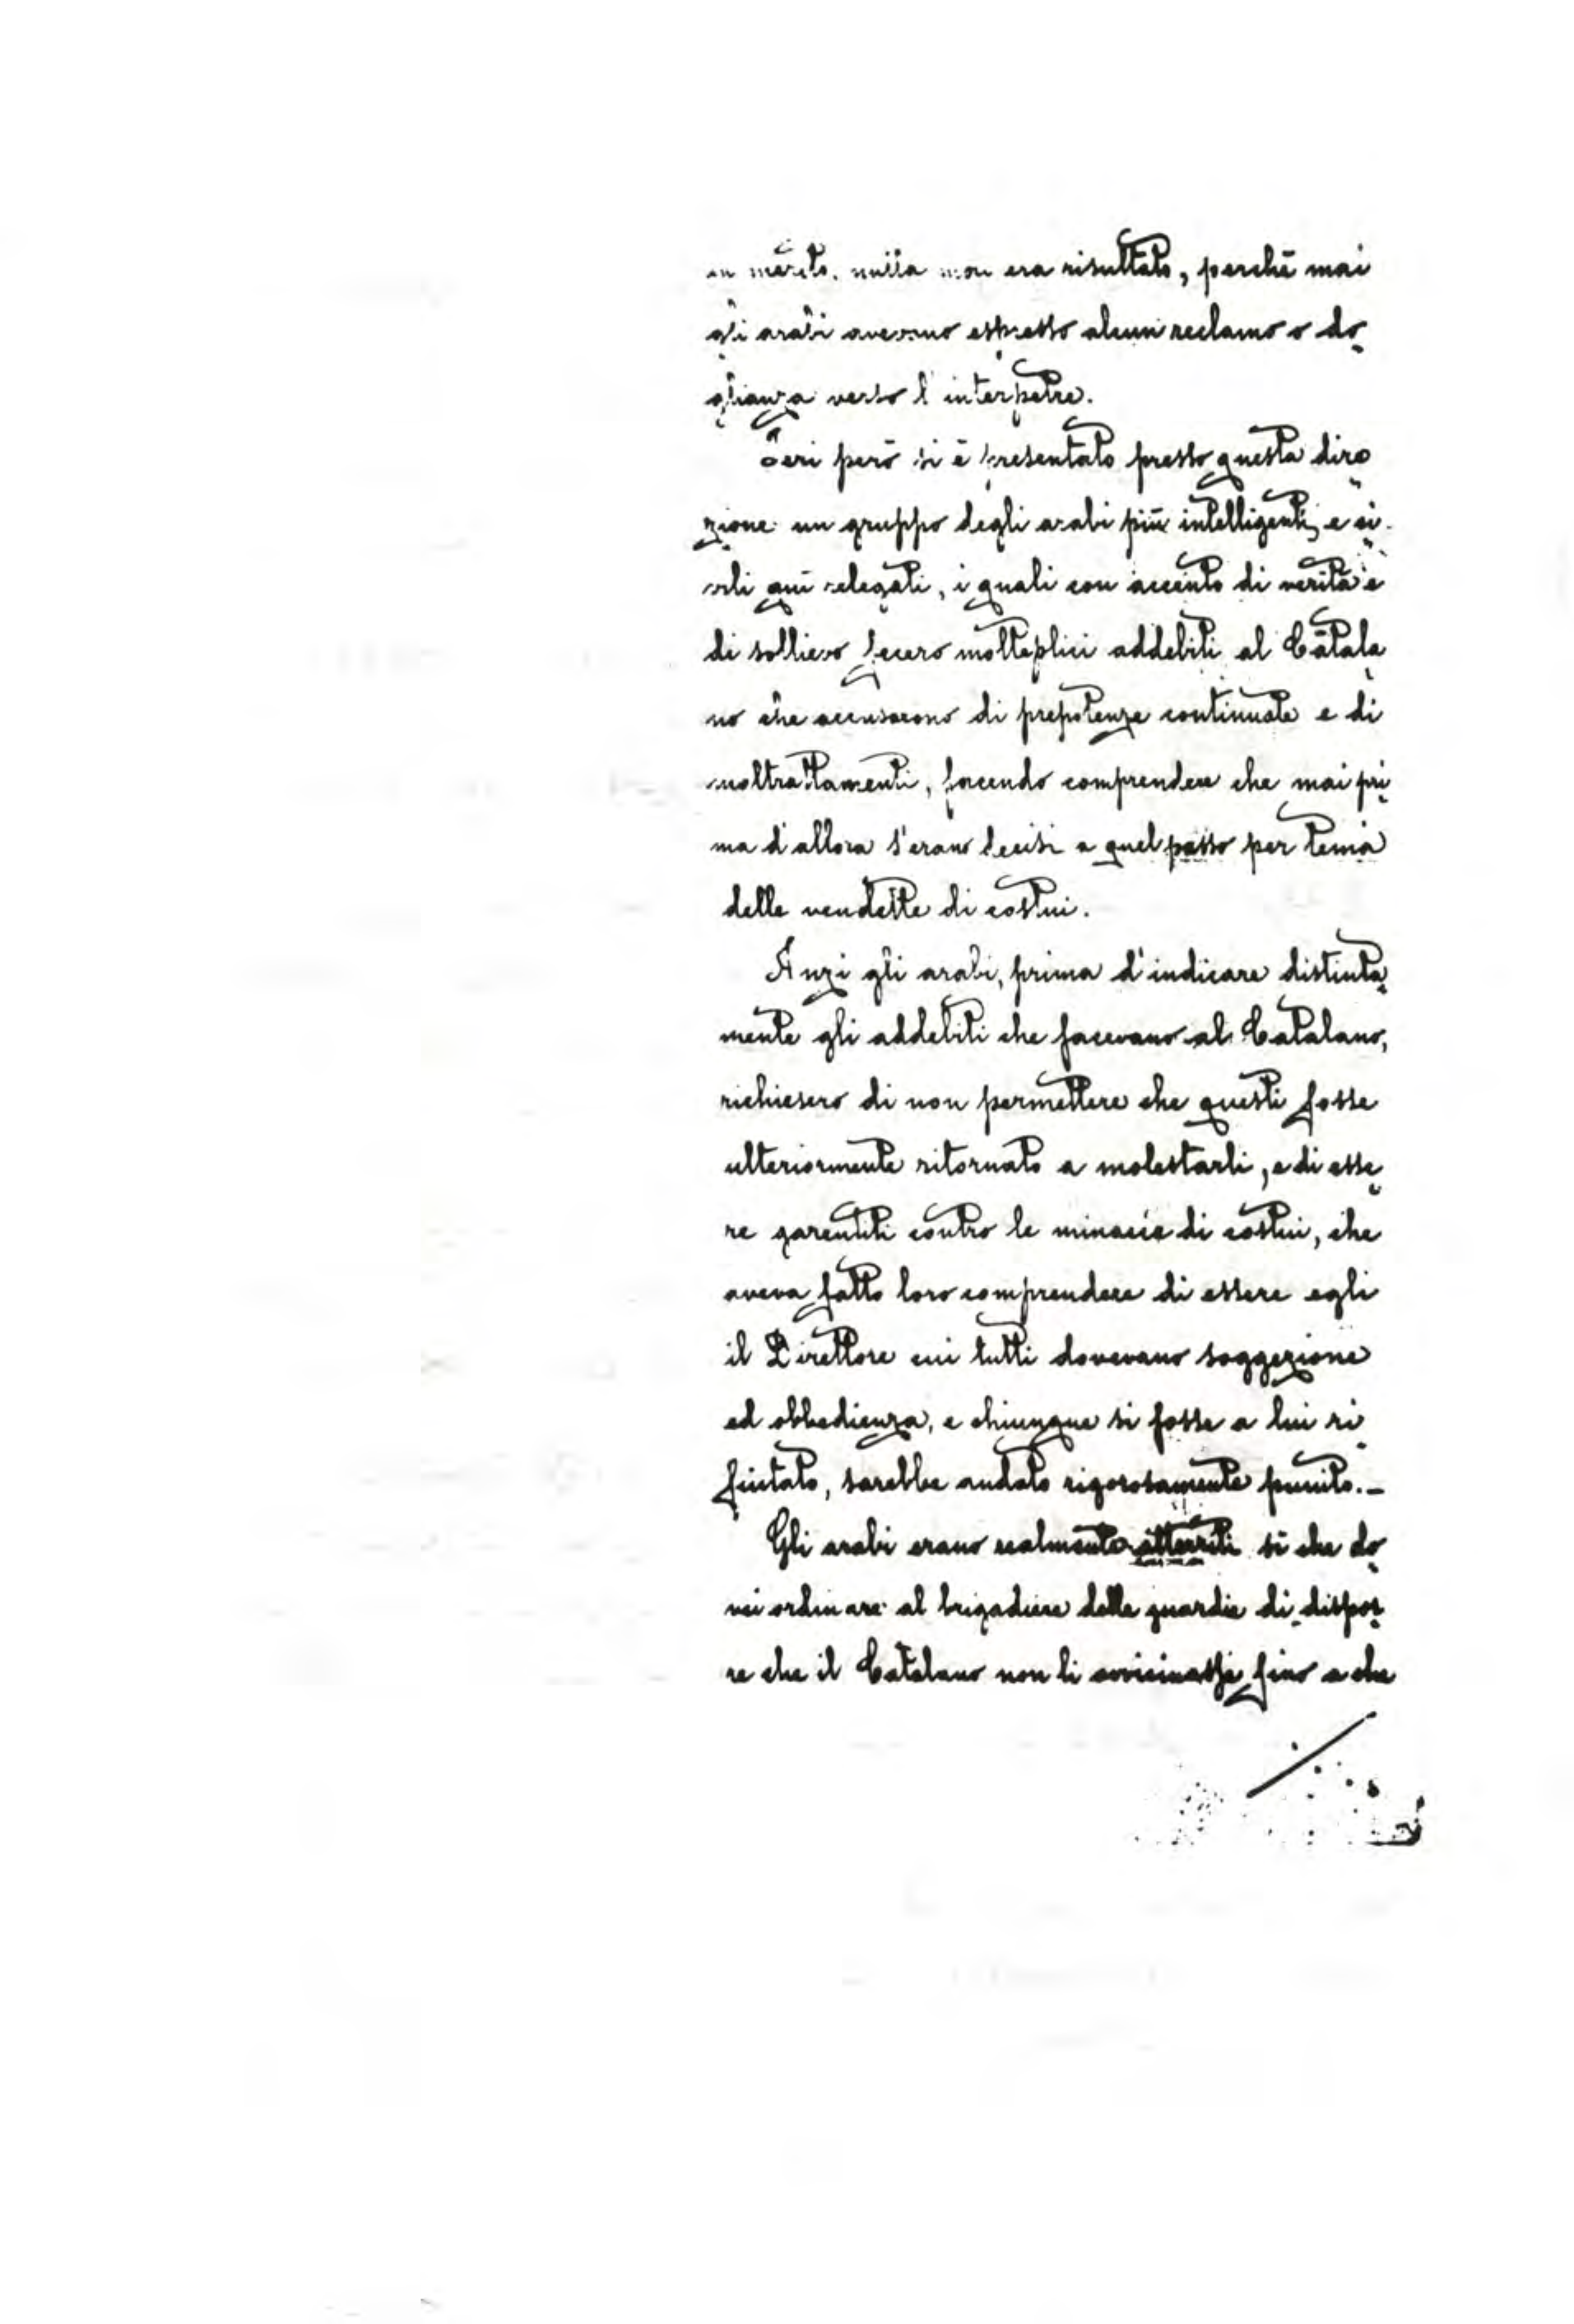 in merito, nulla non era risultato, perchè mai
gli arabi avevano espresso alcun reclamo o do
glianza verso l'interpetre.
Ieri però si è presentato presso questa dire
zione un gruppo degli arabi più intelligenti, e ci
vili qui relegati, i quali con accento di verità e
di sollievo fecero molteplici addebiti al Catala
no che accusarono di prepotenze continuate e di
maltrattamenti, facendo comprendere che mai pri
ma d'allora s'erano decisi a quel passo per tema
delle vendette di costui.
Anzi gli arabi, prima d'indicare distinta
mente gli addebiti che facevano al Catalano,
richiesero di non permettere che questi fosse
ulteriormente ritornato a molestarli, e di esse
re garentiti contro le minacie di costui, che
aveva fatto loro comprendere di essere egli
il Direttore cui tutti dovevano soggezione
ed obbedienza, e chiunque si fosse a lui ri
fiutato, sarebbe andato rigorosamente punito. –
Gli arabi erano realmente atterriti sì che do
vei ordinare al brigadiere delle guardie di dispor
re che il Catalano non li avvicinasse fino a che